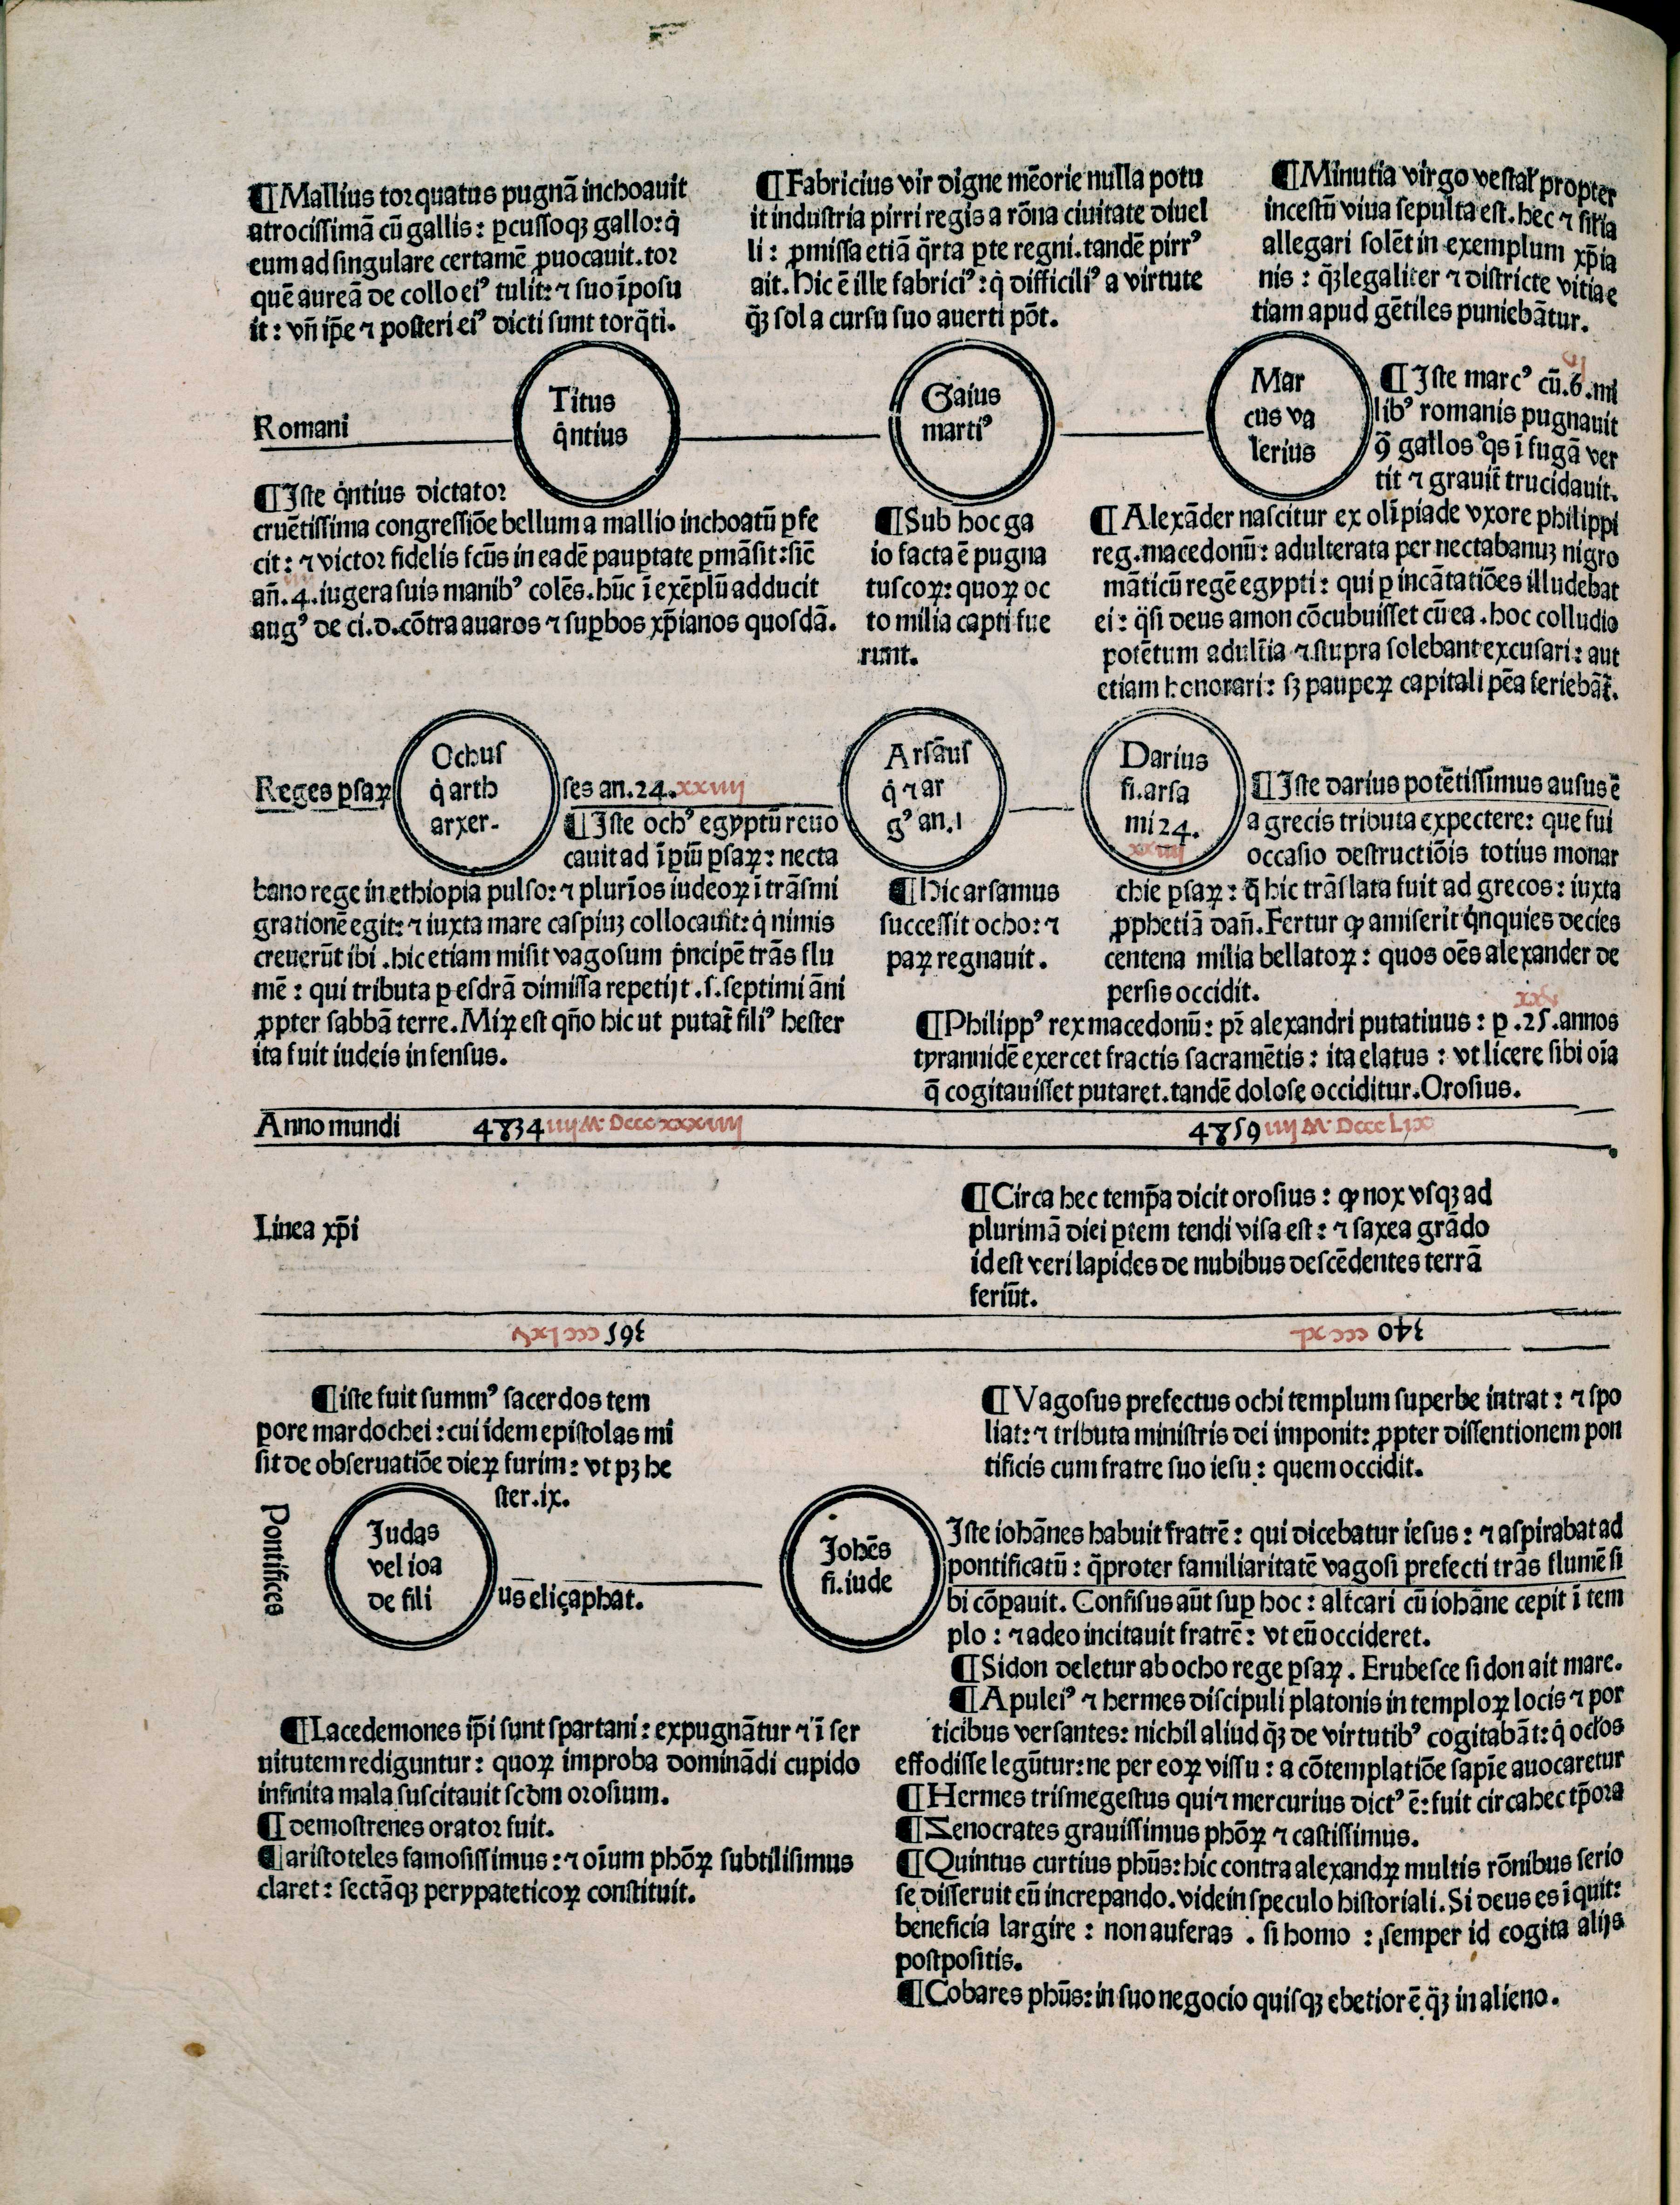 ¶Mallius torquatus pugnā inchoauit
atrocissimā cū gallis: ꝑcussoqꝫ gallo: q̇
eum ad singulare certamē ꝓuocauit. tor
quē aureā de collo eiꝰ tulit: ⁊ suo īposu
it: vn̄ ip̄e ⁊ posteri eiꝰ dicti sunt torq̄ti.
¶Fabricius vir digne mēorie nulla potu
it industria pirri regis a rōna ciuitate diuel
li: ꝓmissa etiā q̄rta ꝑte regni. tandē pirrꝰ
ait. Hic ē ille fabriciꝰ: q̇ difficiliꝰ a virtute
q̄ꝫ sol a cursu suo auerti pōt.
¶Minutia virgo vestal̄ propter
incestū viua sepulta est. hec ⁊ silia
allegari solēt in exemplum xp̄ia
nis: q̄ꝫ legaliter ⁊ districte vitia e
tiam apud gētiles puniebātur.
Romani
Titus
q̇ntius
Gaius
martiꝰ
Mar
cus va
lerius
¶Iste marcꝰ cū .6. mi
libꝰ romanis pugnauit
ꝯ̄ gallos q̊s ī fugā ver
tit ⁊ grauit̄ trucidauit.
¶Iste q̇ntius dictator
cruētissima congressiōe bellum a mallio inchoatū ꝑfe
cit: ⁊ victor fidelis fcūs in eadē pauꝑtate ꝑmāsit: sic̄
an̄. 4. iugera suis manibꝰ colēs. hūc ī exēplū adducit
augꝰ de ci. d. cōtra auaros ⁊ suꝑbos xp̄ianos quosdā.
¶Sub hoc ga
io facta ē pugna
tuscoꝝ: quoꝝ oc
to milia capti fue
runt.
¶Alexāder nascitur ex olīpiade vxore philippi
reg. macedonū: adulterata per nectabanuꝫ nigro
māticū regē egypti: qui ꝑ incātatiōes illudebat
ei: q̇si deus amon cōcubuisset cū ea. hoc colludio
potētum adult̄ia ⁊ stupra solebant excusari: aut
etiam honorari: sꝫ pauꝑeꝝ capitali pēa feriebāt̄.
Reges ꝑsaꝝ
Ochus
q̇ arth
arxer-
ses an. 24. xxiiii
¶Iste ochꝰ egyptū reuo
cauit ad īꝑiū ꝑsaꝝ: necta
bano rege in ethiopia pulso: ⁊ plurīos iudeoꝝ ī trāsmi
grationē egit: ⁊ iuxta mare caspiuꝫ collocauit: q̇ nimis
creuerūt ibi. hic etiam misit vagosum p̄ncipē trās flu
mē: qui tributa ꝑ esdrā dimissa repetijt. s. septimi āni
ꝓpter sabbā terre. Miꝝ est qn̄o hic ut putat̄ filiꝰ hester
ita fuit iudeis infensus.
Arsāus
q̇ ⁊ ar
gꝰ an. 1
¶Hic arsamus
successit ocho: ⁊
paꝝ regnauit.
Darius
fi. arsa
mi 24.
xxiiii
¶Iste darius potētissimus ausus ē
a grecis tributa expectere: que fui
occasio destructiōis totius monar
chie ꝑsaꝝ: q̄ hic trāslata fuit ad grecos: iuxta
ꝓphetiā dan̄. Fertur ꝙ amiserit q̇nquies decies
centena milia bellatoꝝ: quos oēs alexander de
persis occidit.
xxv
¶Philippꝰ rex macedonū: pr̄ alexandri putatiuus: ꝑ .25. annos
tyrannidē exercet fractis sacramētis: ita elatus: vt licere sibi oīa
q̄ cogitauisset putaret. tandē dolose occiditur. Orosius.
Anno mundi 4834 iiii M Dccc xxxiiii 4859 iiii M Dccc Lix
Linea xp̄i
¶Circa hec temp̄a dicit orosius: ꝙ nox vsqꝫ ad
plurimā diei ꝑtem tendi visa est: ⁊ saxea grādo
id est veri lapides de nubibus descēdentes terrā
feriūt.
365 ccc lxv 340 ccc xl
¶iste fuit summꝰ sacerdos tem
pore mardochei: cui īdem epistolas mi
sit de obseruatiōe dieꝝ furim: vt pꝫ he
ster. ix.
¶Vagosus prefectus ochi templum superbe intrat: ⁊ spo
liat: ⁊ tributa ministris dei imponit: ꝓpter dissentionem pon
tificis cum fratre suo iesu: quem occidit.
Pontifices
Judas
vel ioa
de fili
us eliçaphat.
Johēs
fi. iude
Iste iohānes habuit fratrē: qui dicebatur iesus: ⁊ aspirabat ad
pontificatū: q̄ proter familiaritatē vagosi prefecti trās flumē si
bi cōꝑauit. Confisus aūt suꝑ hoc: alt̄cari cū iohāne cepit ī tem
plo: ⁊ adeo incitauit fratrē: vt eū occideret.
¶Sidon deletur ab ocho rege ꝑsaꝝ. Erubesce sidon ait mare.
¶Apuleiꝰ ⁊ hermes discipuli platonis in temploꝝ locis ⁊ por
ticibus versantes: nichil aliud q̄ꝫ de virtutibꝰ cogitabāt: q̇ oclos
effodisse legūtur: ne per eoꝝ vissu: a cōtemplatiōe sapīe auocaretur
¶Hermes trismegestus qui ⁊ mercurius dictꝰ ē: fuit circa hec tp̄ora
¶Zenocrates grauissimus phōꝝ ⁊ castissimus.
¶Quintus curtius phūs: hic contra alexandꝝ multis rōnibus serio
se disseruit eū increpando. vide in speculo historiali. Si deus es īquit:
beneficia largire: non auferas. si homo: semper id cogita alijs
postpositis.
¶Cobares phūs: in suo negocio quisqꝫ ebetior ē q̄ꝫ in alieno.
¶Lacedemones ip̄i sunt spartani: expugnātur ⁊ ī ser
uitutem rediguntur: quoꝝ improba dominādi cupido
infinita mala suscitauit scdm orosium.
¶demostrenes orator fuit.
¶aristoteles famosissimus: ⁊ oīum phōꝝ subtilisimus
claret: sectāqꝫ perypateticoꝝ constituit.